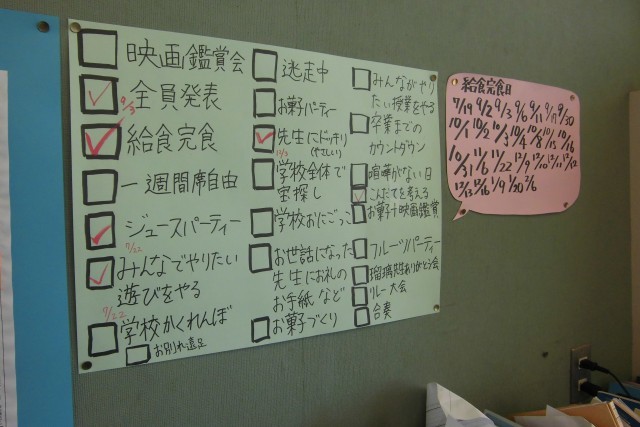 映画鑑賞会
全員発表
9/3
給食完食
一週間席自由
ジュースパーティー
7/22
みんなでやりたい
遊びをやる
9/22
学校かくれんぼ
お別れ遠足
逃走中
お菓子パーティー
先生にドッキリ
(やさしい)
学校全体で
宝探し
学校おにごっこ
お世話になった
先生にお礼の
お手紙など
お菓子づくり
みんながやり
たい授業をやる
卒業までの
カウントダウン
喧嘩がない日
こんだてを考える
お菓子+映画鑑賞
フルーツパーティー
瑠璃先生ありがとう会
リレー大会
合奏
給食完食日
7/19 9/2 9/3 9/6 9/11 9/17 9/30
10/1 10/2 10/3 10/4 10/8 10/15 10/16
10/31 11/6 11/22 12/9 12/10 12/11 12/12
12/13 12/16 1/9 1/20 2/6